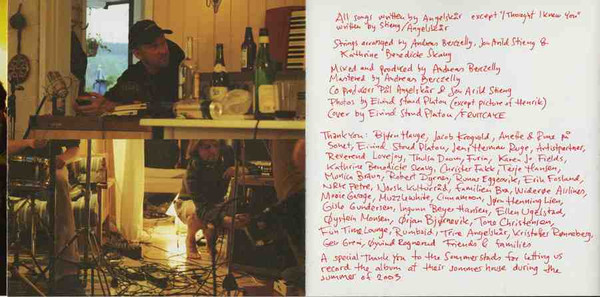 All songs written by Angelskår except "I Thought I Knew You"
written by Stieng/Angelskår
Strings arranged by Andreas Berczelly, Jon Arild Stieng &
Kathrine Benedicte Skaug
Mixed and produced by Andreas Berczelly
Mastered by Andreas Berczelly
Co producers Pål Angelskår & Jon Arild Stieng
Photos by Eivind Stoud Platou (except picture of Henrik)
Cover by Eivind Stoud Platou / FRUITCAKE
Thank You: Bjørn Hauge, Jacob Krogvold, Anette & Rune på
Sonet, Eivind Stoud Platou, Jens Herman Ruge, Artistpartner,
Reverend Lovejoy, Thulsa Doom, Furia, Karen Jo Fields,
Kathrine Benedicte Skaug, Christer Falck, Terje Hansen,
Monica Braun, Robert Dyrnes, Runar Eggesvik, Erik Fosland,
NRK Petre, Norsk Kulturråd, Familien Bra, Widerøe Airlines,
Moxie Garage, Muzzlewhite, Cinnammon, Jørn Henning Lien,
Gisle Gundersen, Ingunn Beyer Hansen, Ellen Ugelstad,
Øystein Monsen, Ørjan Bjørnevik, Tone Christensen,
Fun Time Lounge, Rumbold, Trine Angelskår, Kristoffer Rønneberg,
Geir Greni, Øyvind Røgnerud Friends & families
A special thank you to the Sommerstads for letting us
record the album at their sommerhouse during the
summer of 2003